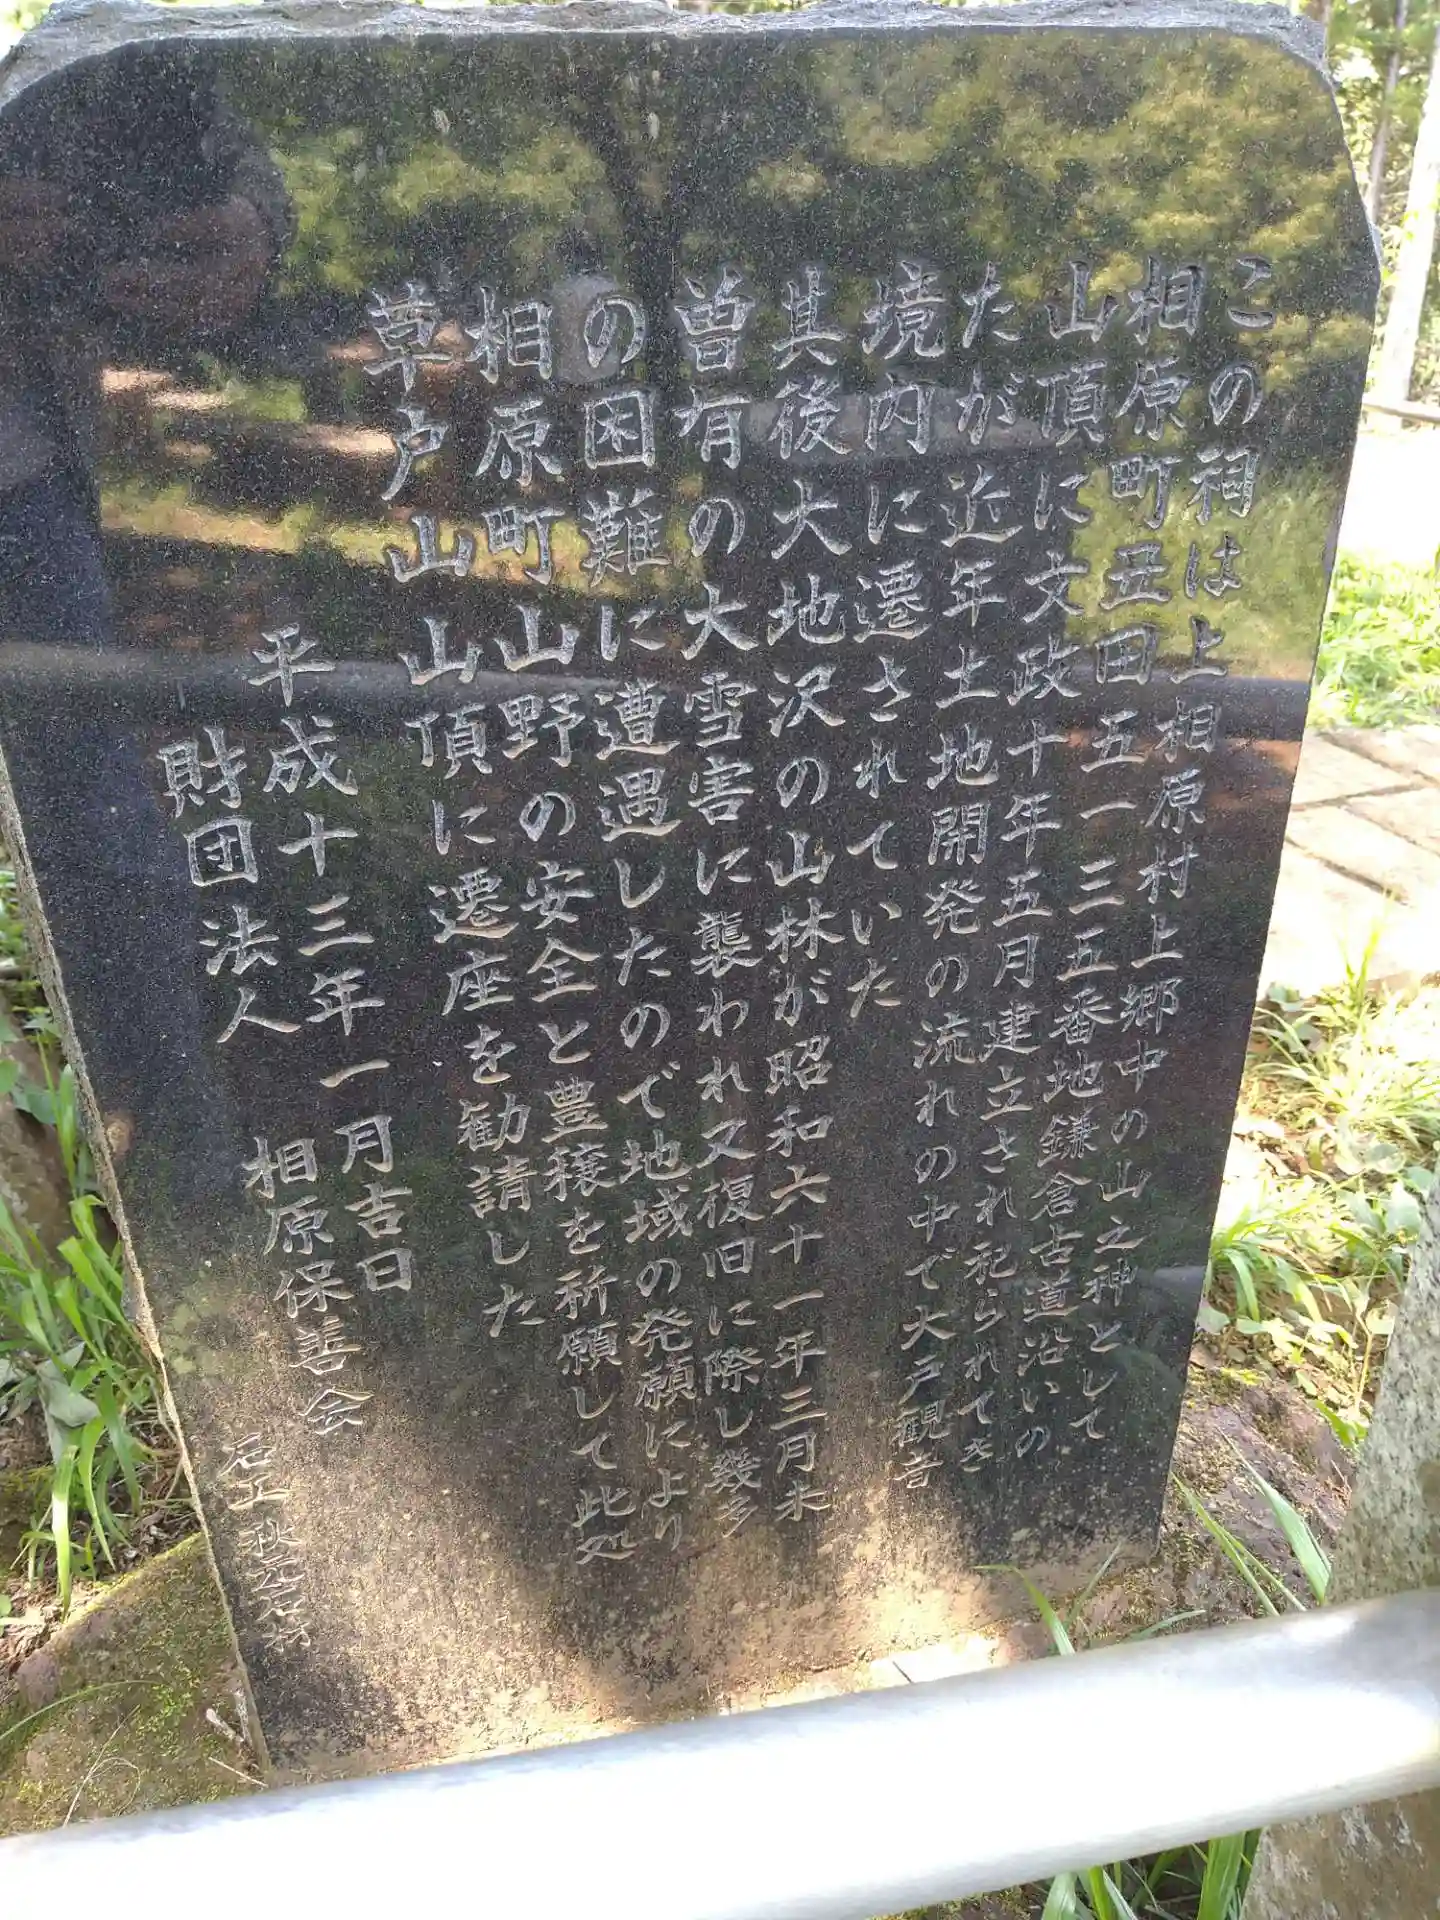 この祠は上相原村上郷中の山之神として
相原町丑田五一三五番地鎌倉古道沿いの
山頂に文政十年五月建立され祀られてき
たが 近年土地開発の流れの中で大戸観音
境内に遷されていた
其後大地沢の山林が昭和六十一年三月未
曽有の大雪害に襲われ又復旧に際し幾多
の困難に遭遇したので地域の発願により
相原町山野の安全と豊穣を祈願して此処
草戸山山頂に遷座を勧請した
平成十三年一月吉日
財団法人 相原保善会
石工 秋元石材